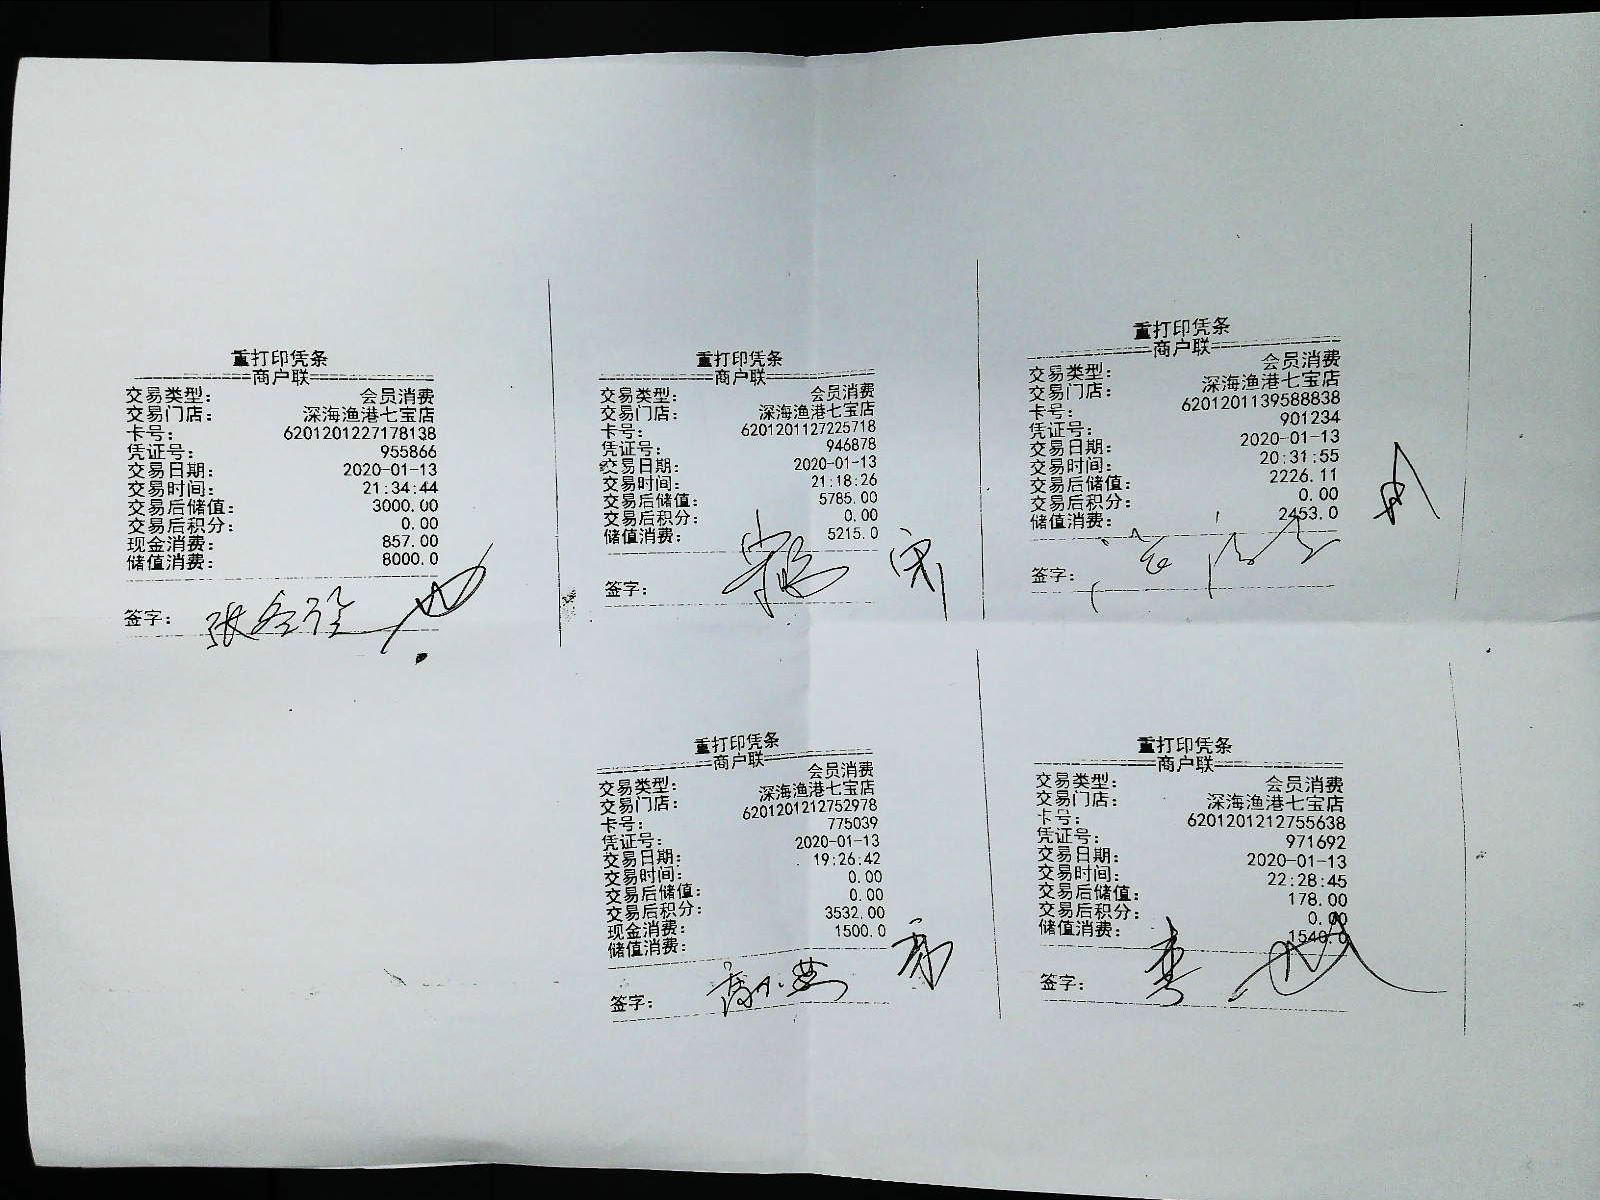 重打印凭条
商户联
交易类型: 会员消费
交易门店: 深海渔港七宝店
卡号: 6201201227178138
凭证号: 955866
交易日期: 2020-01-13
交易时间: 21:34:44
交易后储值: 3000.00
交易后积分: 0.00
现金消费: 857.00
储值消费: 8000.0
签字:
重打印凭条
商户联
交易类型: 会员消费
交易门店: 深海渔港七宝店
卡号: 6201201127225718
凭证号: 946878
交易日期: 2020-01-13
交易时间: 21:18:26
交易后储值: 5785.00
交易后积分: 0.00
储值消费: 5215.0
签字:
重打印凭条
商户联
交易类型: 会员消费
交易门店: 深海渔港七宝店
卡号: 6201201139588838
凭证号: 901234
交易日期: 2020-01-13
交易时间: 20:31:55
交易后储值: 2226.11
交易后积分: 0.00
储值消费: 2453.0
签字:
重打印凭条
商户联
交易类型: 会员消费
交易门店: 深海渔港七宝店
卡号: 6201201212752978
凭证号: 775039
交易日期: 2020-01-13
交易时间: 19:26:42
交易后储值: 0.00
交易后积分: 0.00
现金消费: 3532.00
储值消费: 1500.0
签字:
重打印凭条
商户联
交易类型: 会员消费
交易门店: 深海渔港七宝店
卡号: 6201201212755638
凭证号: 971692
交易日期: 2020-01-13
交易时间: 22:28:45
交易后储值: 178.00
交易后积分: 0.00
储值消费: 1540.0
签字: